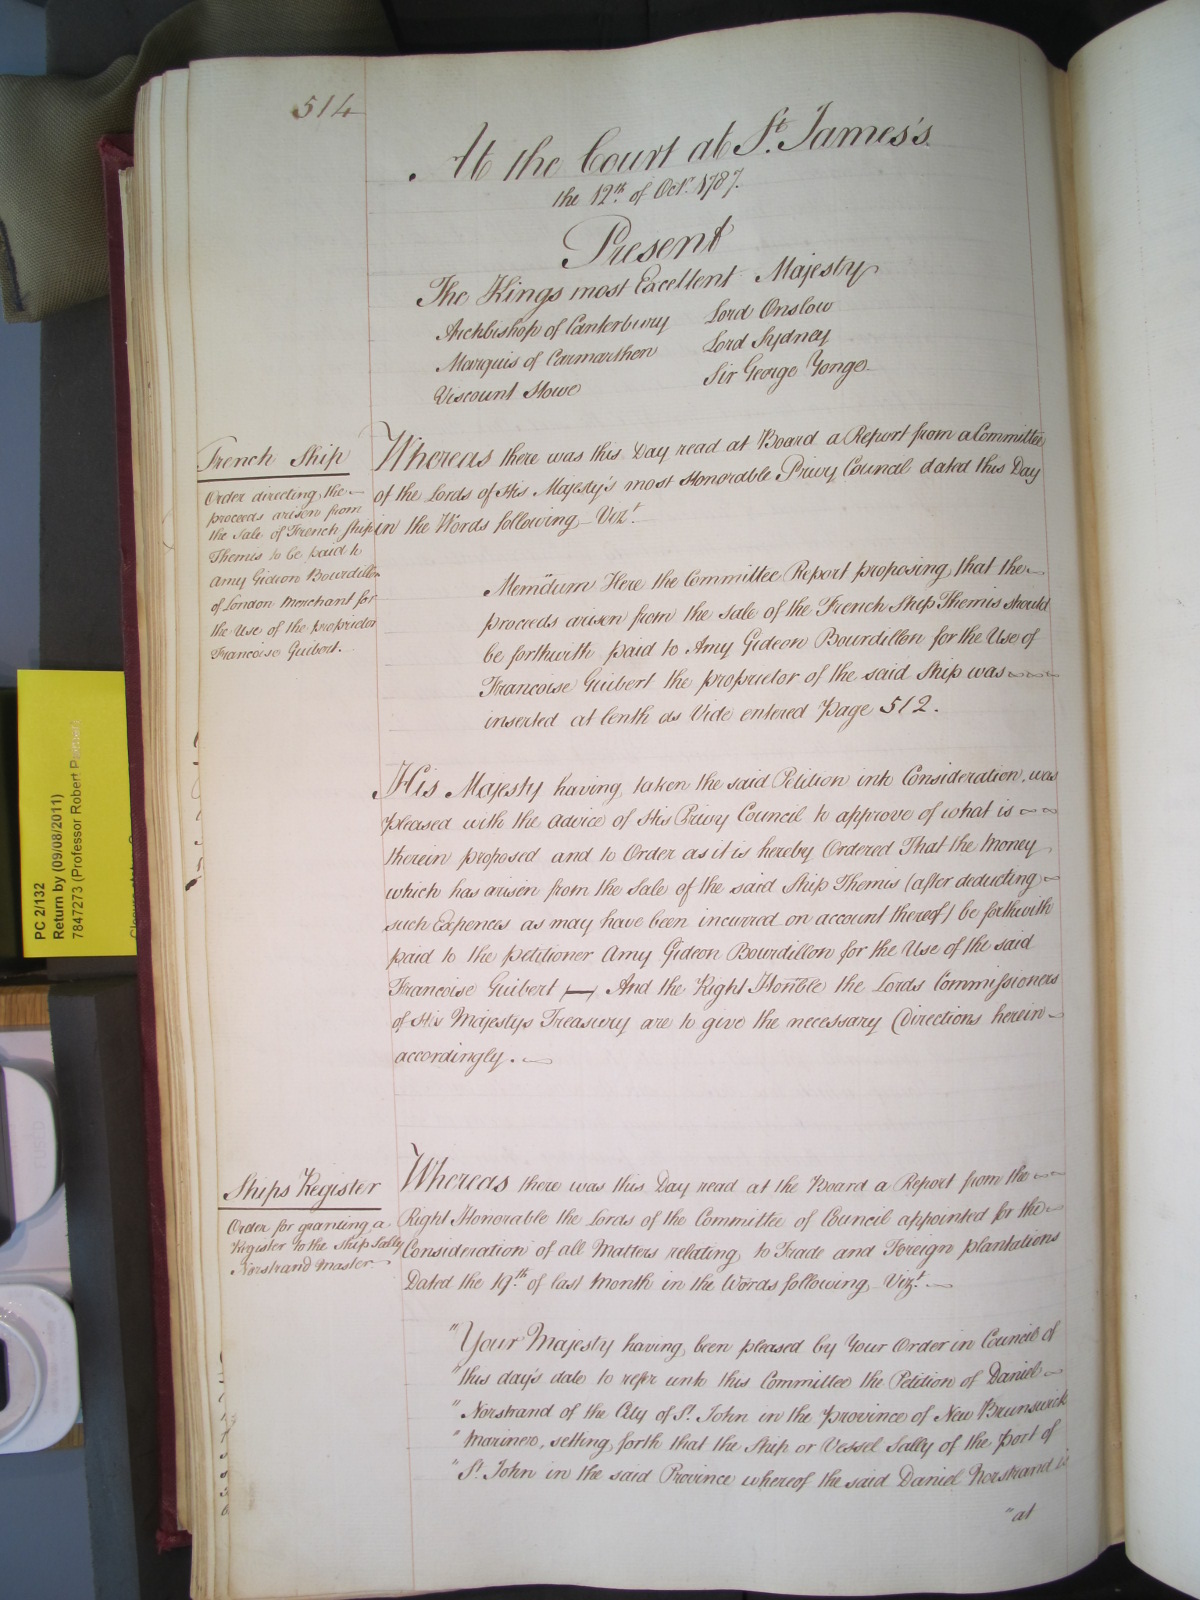 514
At the Court at St. James's
the 12th of Octr. 1787.
Present
The Kings most Excellent Majesty
Archbishop of Canterbury Lord Onslow
Marquis of Carmarthen Lord Sydney
Viscount Howe Sir George Yonge
French Ship
Order directing the
proceeds arisen from
the Sale of French Ship
Themis to be paid to
Amy Gideon Bourdillon
of London Merchant for
the Use of the proprietor
Francoise Guibert.
Whereas there was this Day read at Board a Report from a Committee
of the Lords of His Majesty's most Honorable Privy Council dated this Day
in the Words following Vizt.
Memdum Here the Committee Report proposing that the
proceeds arisen from the Sale of the French Ship Themis should
be forthwith paid to Amy Gideon Bourdillon for the Use of
Francoise Guibert the proprietor of the said Ship was
inserted at lenth as Vide entered Page 512.
His Majesty having taken the said Petition into Consideration, was
pleased with the advice of His Privy Council to approve of what is
therein proposed and to Order as it is hereby Ordered That the Money
which has arisen from the Sale of the said Ship Themis (after deducting
such Expences as may have been incurred on account thereof) be forthwith
paid to the petitioner Amy Gideon Bourdillon for the Use of the said
Francoise Guibert — And the Right Honble the Lords Commissioners
of His Majestys Treasury are to give the necessary Directions herein
accordingly.
Ships Register
Order for granting a
Register to the Ship Sally
Norstrand Master
Whereas there was this Day read at the Board a Report from the
Right Honorable the Lords of the Committee of Council appointed for the
Consideration of all Matters relating to Trade and Foreign plantations
Dated the 19th of last Month in the Words following Vizt.
"Your Majesty having been pleased by Your Order in Council of
"this day's date to refer unto this Committee the Petition of Daniel
"Norstrand of the City of St. John in the Province of New Brunswick
"Mariner, setting forth that the Ship or Vessel Sally of the port of
"St. John in the said Province whereof the said Daniel Norstrand is
"at
PC 2/132
Return by (09/08/2011)
7847273 (Professor Robert